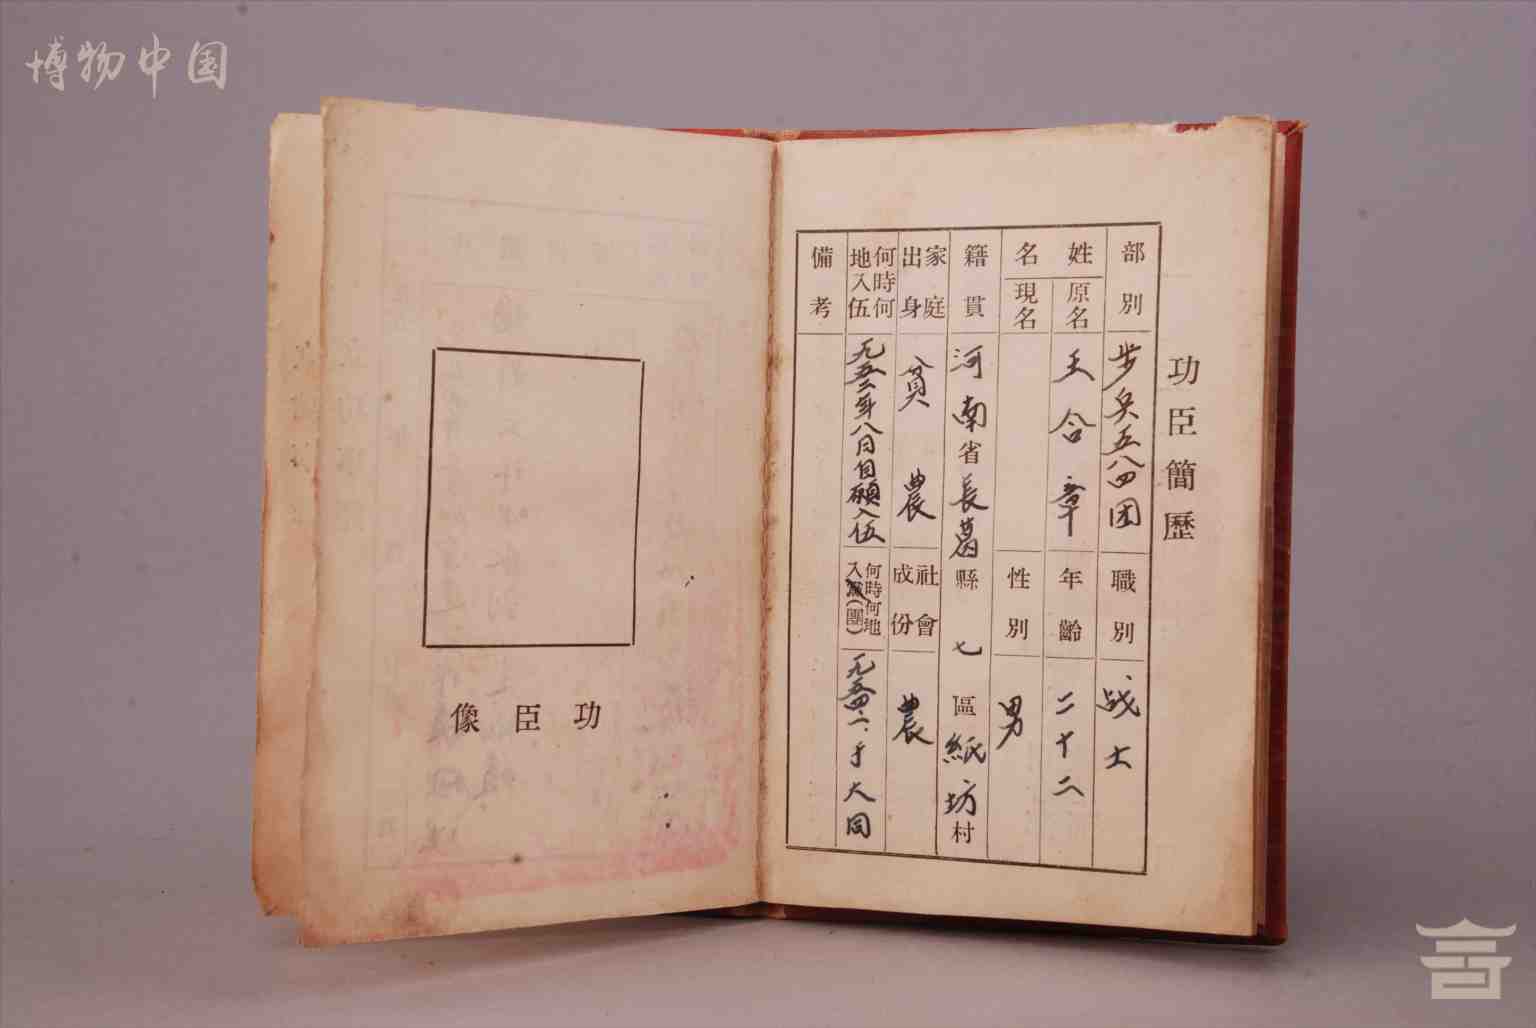 博物中国
功臣簡歷
部別
步兵五八四团
職別
战士
姓名
原名
王合章
年齡
二十二
現名
性別
男
籍貫
河南省長葛縣七區紙坊村
家庭出身
貧農
社會成份
農
何時何地入伍
一九五二年八月自願入伍
何時何地入黨(團)
一九五四.二.于大同
備考
功臣像